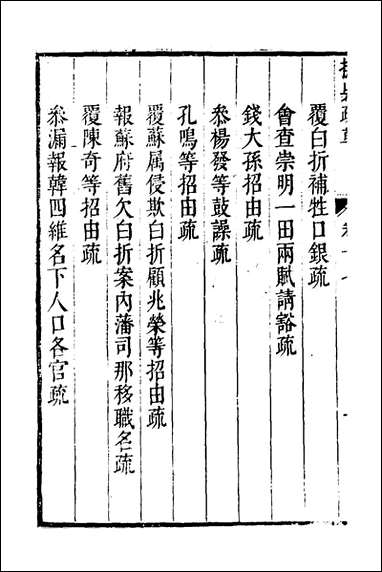 覆白折補牲口銀疏
會查崇明一田兩賦請豁疏
錢大孫招由疏
叅楊發等鼓譟疏
孔鳴等招由疏
覆蘇属侵欺白折顧兆榮等招由疏
報蘇府舊欠白折案內藩司那移職名疏
覆陳奇等招由疏
叅漏報韓四維名下人口各官疏